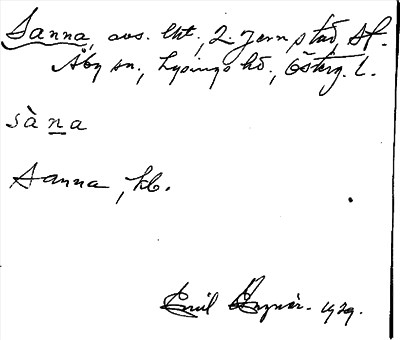 Sanna, avs. lht., 2. Jernstad, St.
Åby sn, Lysings hd, Österg. l.
sàna
Sanna, hb.
Emil 1929.